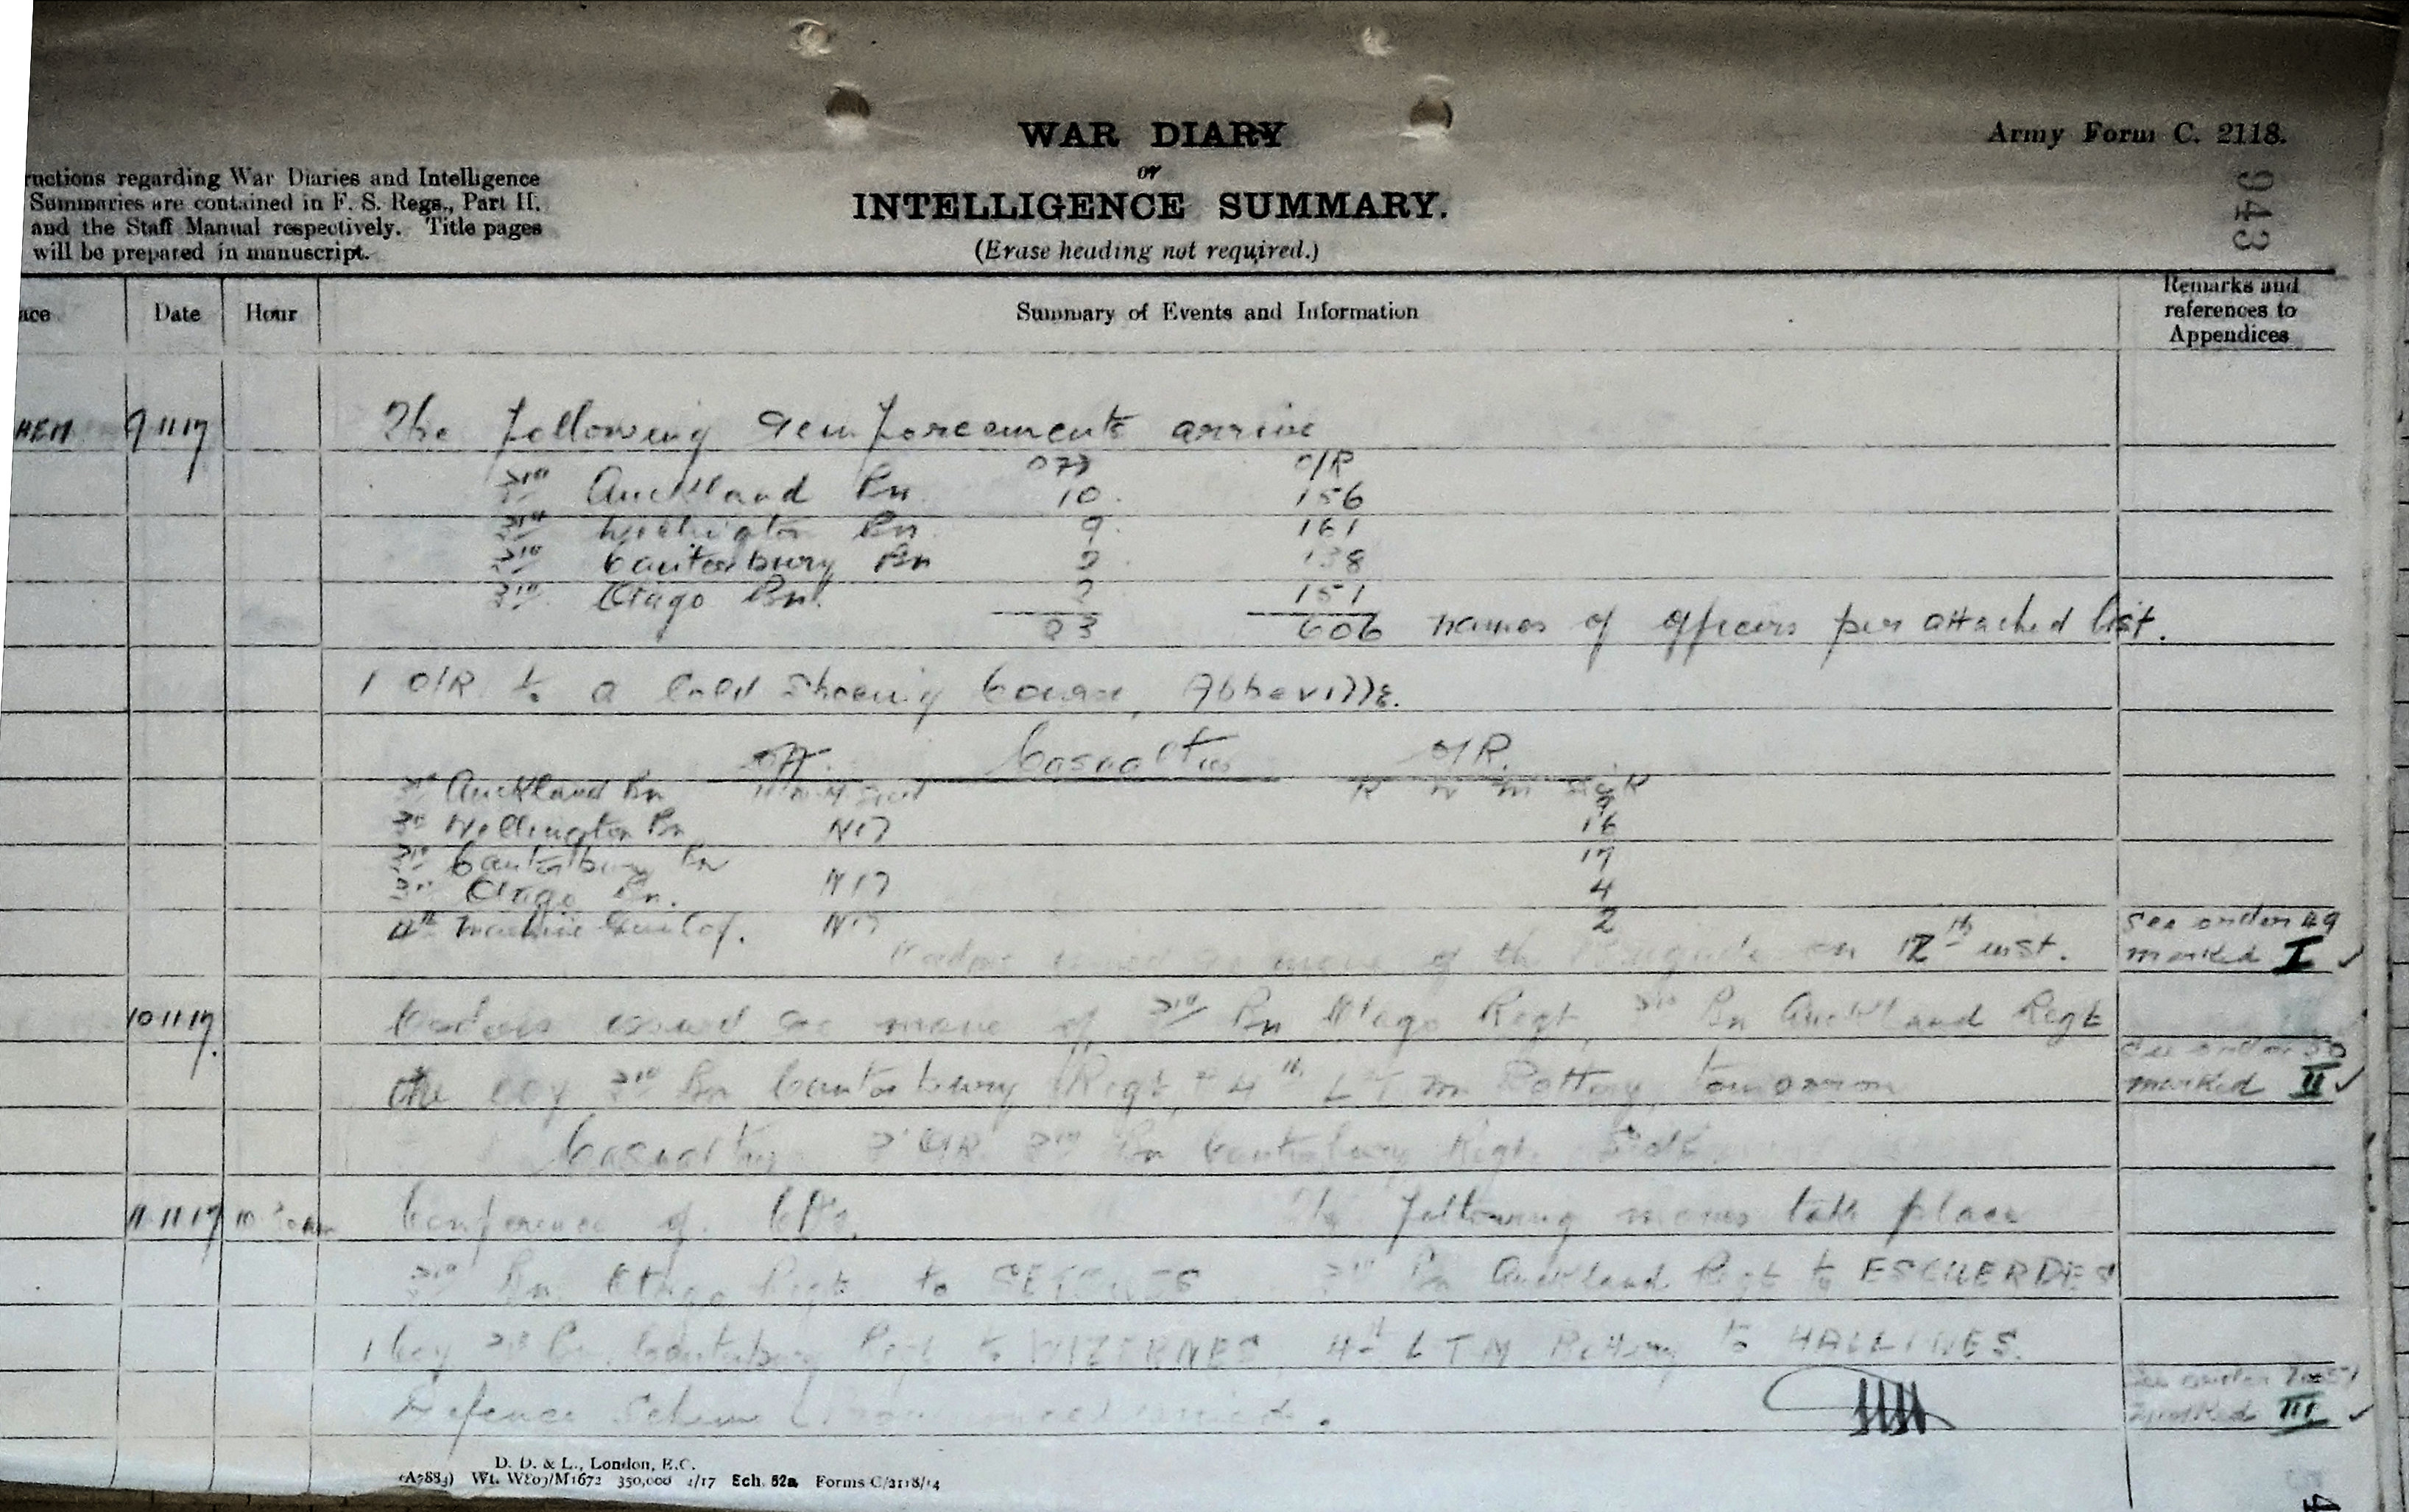 WAR DIARY
or
INTELLIGENCE SUMMARY.
(Erase heading not required.)
Army Form C. 2118.
943
ructions regarding War Diaries and Intelligence
Summaries are contained in F. S. Regs., Part II.
and the Staff Manual respectively. Title pages
will be prepared in manuscript.
ace Date Hour Summary of Events and Information Remarks and references to Appendices
HEM 9.11.17 The following reinforcements arrive
Off O/R
3rd Auckland Bn 10. 156
3rd Wellington Bn 9. 161
3rd Canterbury Bn 138
3rd Otago Bn. 2 151
23 606 names of officers per attached list.
1 O/R to a Cold Shoeing Course, Abbeville.
Off. Casualties O/R.
3rd Auckland Bn K W M Sick 9
3rd Wellington Bn Nil 16
3rd Canterbury Bn 17
3rd Otago Bn. Nil 4
4th Machine Gun Coy. Nil 2
Orders issued re move of the Brigade on 12th inst. See order 49
marked I
10.11.17. Orders issued re move of 3rd Bn Otago Regt, 3rd Bn Auckland Regt
One Coy 3rd Bn Canterbury Regt, & 4th L T M Battery, tomorrow See order 50
marked II
Casualties O/R 3rd Bn Canterbury Regt. Sick.
11.11.17 10.30am Conference of COs. The following moves take place
3rd Bn Otago Regt to SETQUES 3rd Bn Auckland Regt to ESCUERDES
1 Coy 3rd Bn Canterbury Regt to WIZERNES 4th L T M Battery to HALLINES.
Defence Scheme issued. See order No 51
marked III
D. D. & L., London, E.C.
(A7883) Wt. W809/M1672 350,000 4/17 Sch. 52a Forms C/2118/14